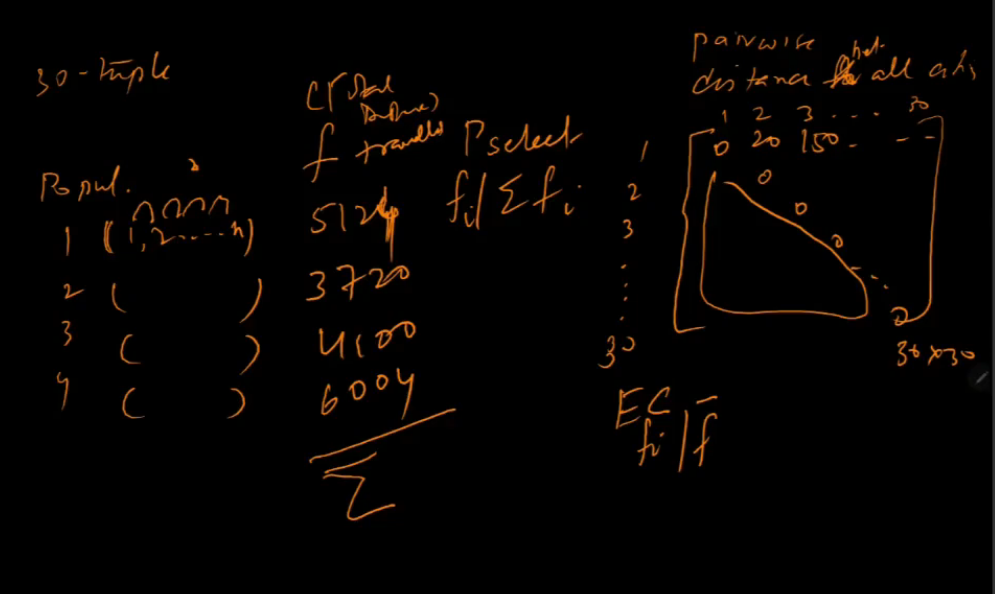 30-tuple
Popul.
1 (1, 2 ..... n)
2 ( )
3 ( )
4 ( )
f
5124
3720
4100
6004
Σ
Pselect
fi / Σ fi
pairwise
distance bet. all cities
1 2 3 .... 30
1 0 20 150 - - -
2 0
3 0
0
30 0
30 x 30
EC
fi / f̄